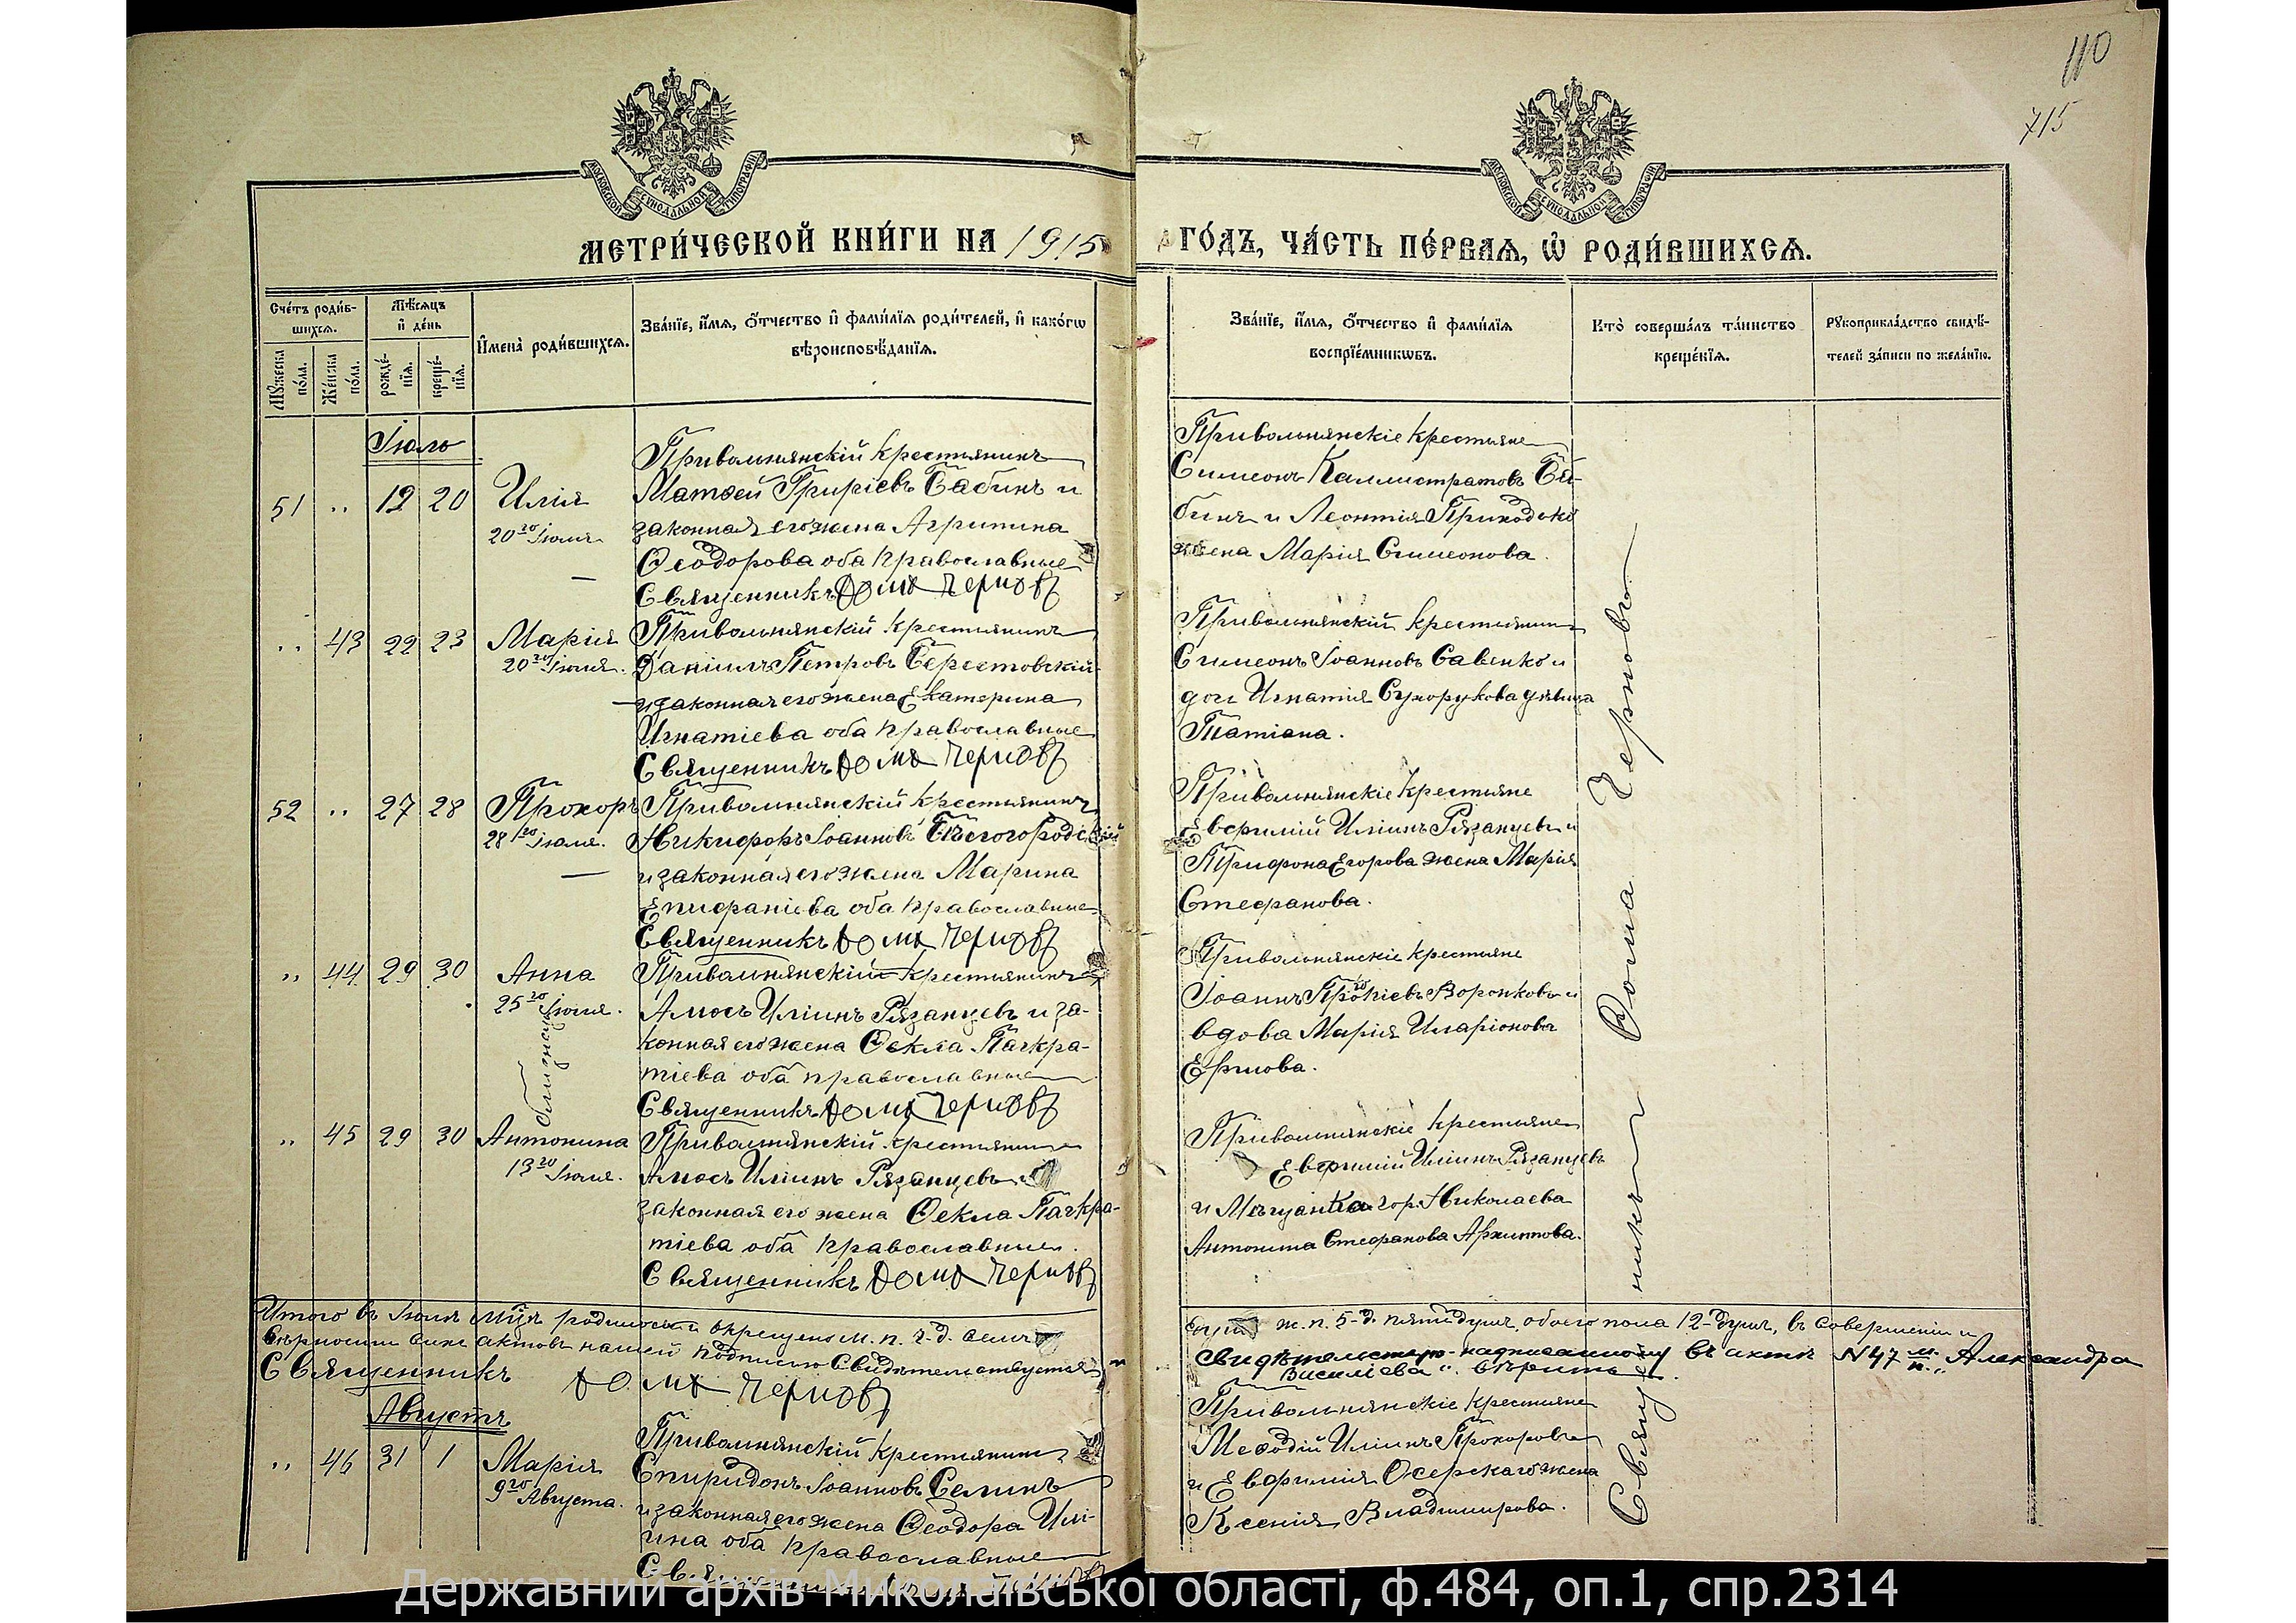 110
715
МОСКОВСКОЙ СѴНОДАЛЬНОЙ ТИПОГРАФІИ
МОСКОВСКОЙ СѴНОДАЛЬНОЙ ТИПОГРАФІИ
МЕТРИ́ЧЕСКОЙ КНИ́ГИ НА 1915
ГО́ДЪ, ЧА́СТЬ ПЕ́РВАѦ, Ѡ҆ РОДИ́ВШИХСѦ.
Сче́тъ роди́в-
шихсѧ.
Мꙋ́жеска
по́ла.
Же́нска
по́ла.
Мѣ́сѧцъ
и҆ де́нь
рожде́-
нїѧ.
креще́-
нїѧ.
И҆мена̀ роди́вшихсѧ.
Зва́нїе, и҆́мѧ, ѻ҆́тчество и҆ фами́лїѧ роди́телей, и҆ како́гѡ
вѣроисповѣ́данїѧ.
Зва́нїе, и҆́мѧ, ѻ҆́тчество и҆ фами́лїѧ
воспрїе́мникѡвъ.
Кто̀ соверша́лъ та́инство
креще́нїѧ.
Рꙋкоприкла́дство свидѣ́-
телей за́писи по жела́нїю.
Іюль
51 " 19 20 Илія
20го Іюля
Привольнянскій крестьянинъ
Матѳей Григріевъ Бабинъ и
законная его жена Агрипина
Ѳеодорова оба православные
Священникъ Ѳома Черновъ
Привольнянскіе крестьяне
Симеонъ Каллистратовъ Ба-
бинъ и Леонтія Приходько
жена Марія Симеонова.
" 43 22 23 Марія
20го Іюля.
Привольнянскій крестьянинъ
Даніилъ Петровъ Берестовскій
и законная его жена Екатерина
Игнатіева оба православные
Священникъ Ѳома Черновъ
Привольнянскій крестьянинъ
Симеонъ Іоанновъ Савенко и
дочь Игнатія Сухорукова дѣвица
Татіана.
52 " 27 28 Прохоръ
28го Іюля.
Привольнянскій крестьянинъ
Никифоръ Іоанновъ Бѣлогородскій
и законная его жена Марина
Епифаніева оба православные
Священникъ Ѳома Черновъ
Привольнянскіе крестьяне
Евфимій Иліинъ Рязанцевъ и
Трифона Егорова жена Марія
Стефанова.
" 44 29 30 Анна
25го Іюля.
Близнецы
Привольнянскій крестьянинъ
Амосъ Иліинъ Рязанцевъ и за-
конная его жена Ѳекла Панкра-
тіева оба православные
Священникъ Ѳома Черновъ
Привольнянскіе крестьяне
Іоаннъ Воронковъ и
вдова Марія Иларіонова
Ершова.
" 45 29 30 Антонина
13го Іюля.
Привольнянскій крестьянинъ
Амосъ Иліинъ Рязанцевъ и
законная его жена Ѳекла Панкра-
тіева оба православные.
Священникъ Ѳома Черновъ
Привольнянскіе крестьяне
Евфимій Иліинъ Рязанцевъ
и Мѣщанка гор. Николаева
Антонина Стефанова Архиппова.
Итого въ Іюлѣ м-цѣ родилось и окрещено м. п. 7-д. семь
душъ ж. п. 5-д. пять душъ, обоего пола 12-душъ, въ совершеніи и
вѣрности сихъ актовъ нашей подписью Свидѣтельствуется
Священникъ Ѳома Черновъ
надписанному въ актѣ N 47 м. п. „Александра
Василіева“. вѣрить.
Августъ
" 46 31 1 Марія
9го Августа.
Привольнянскій крестьянинъ
Спиридонъ Іоанновъ Селинъ
и законная его жена Ѳеодора Илі-
ина оба православные
Священникъ Ѳома Черновъ
Привольнянскіе крестьяне
Меѳодій Иліинъ Прохоровъ
и Евфимія Осерскаго жена
Ксенія Владимирова.
Священникъ Ѳома Черновъ
Державний архів Миколаївської області, ф.484, оп.1, спр.2314